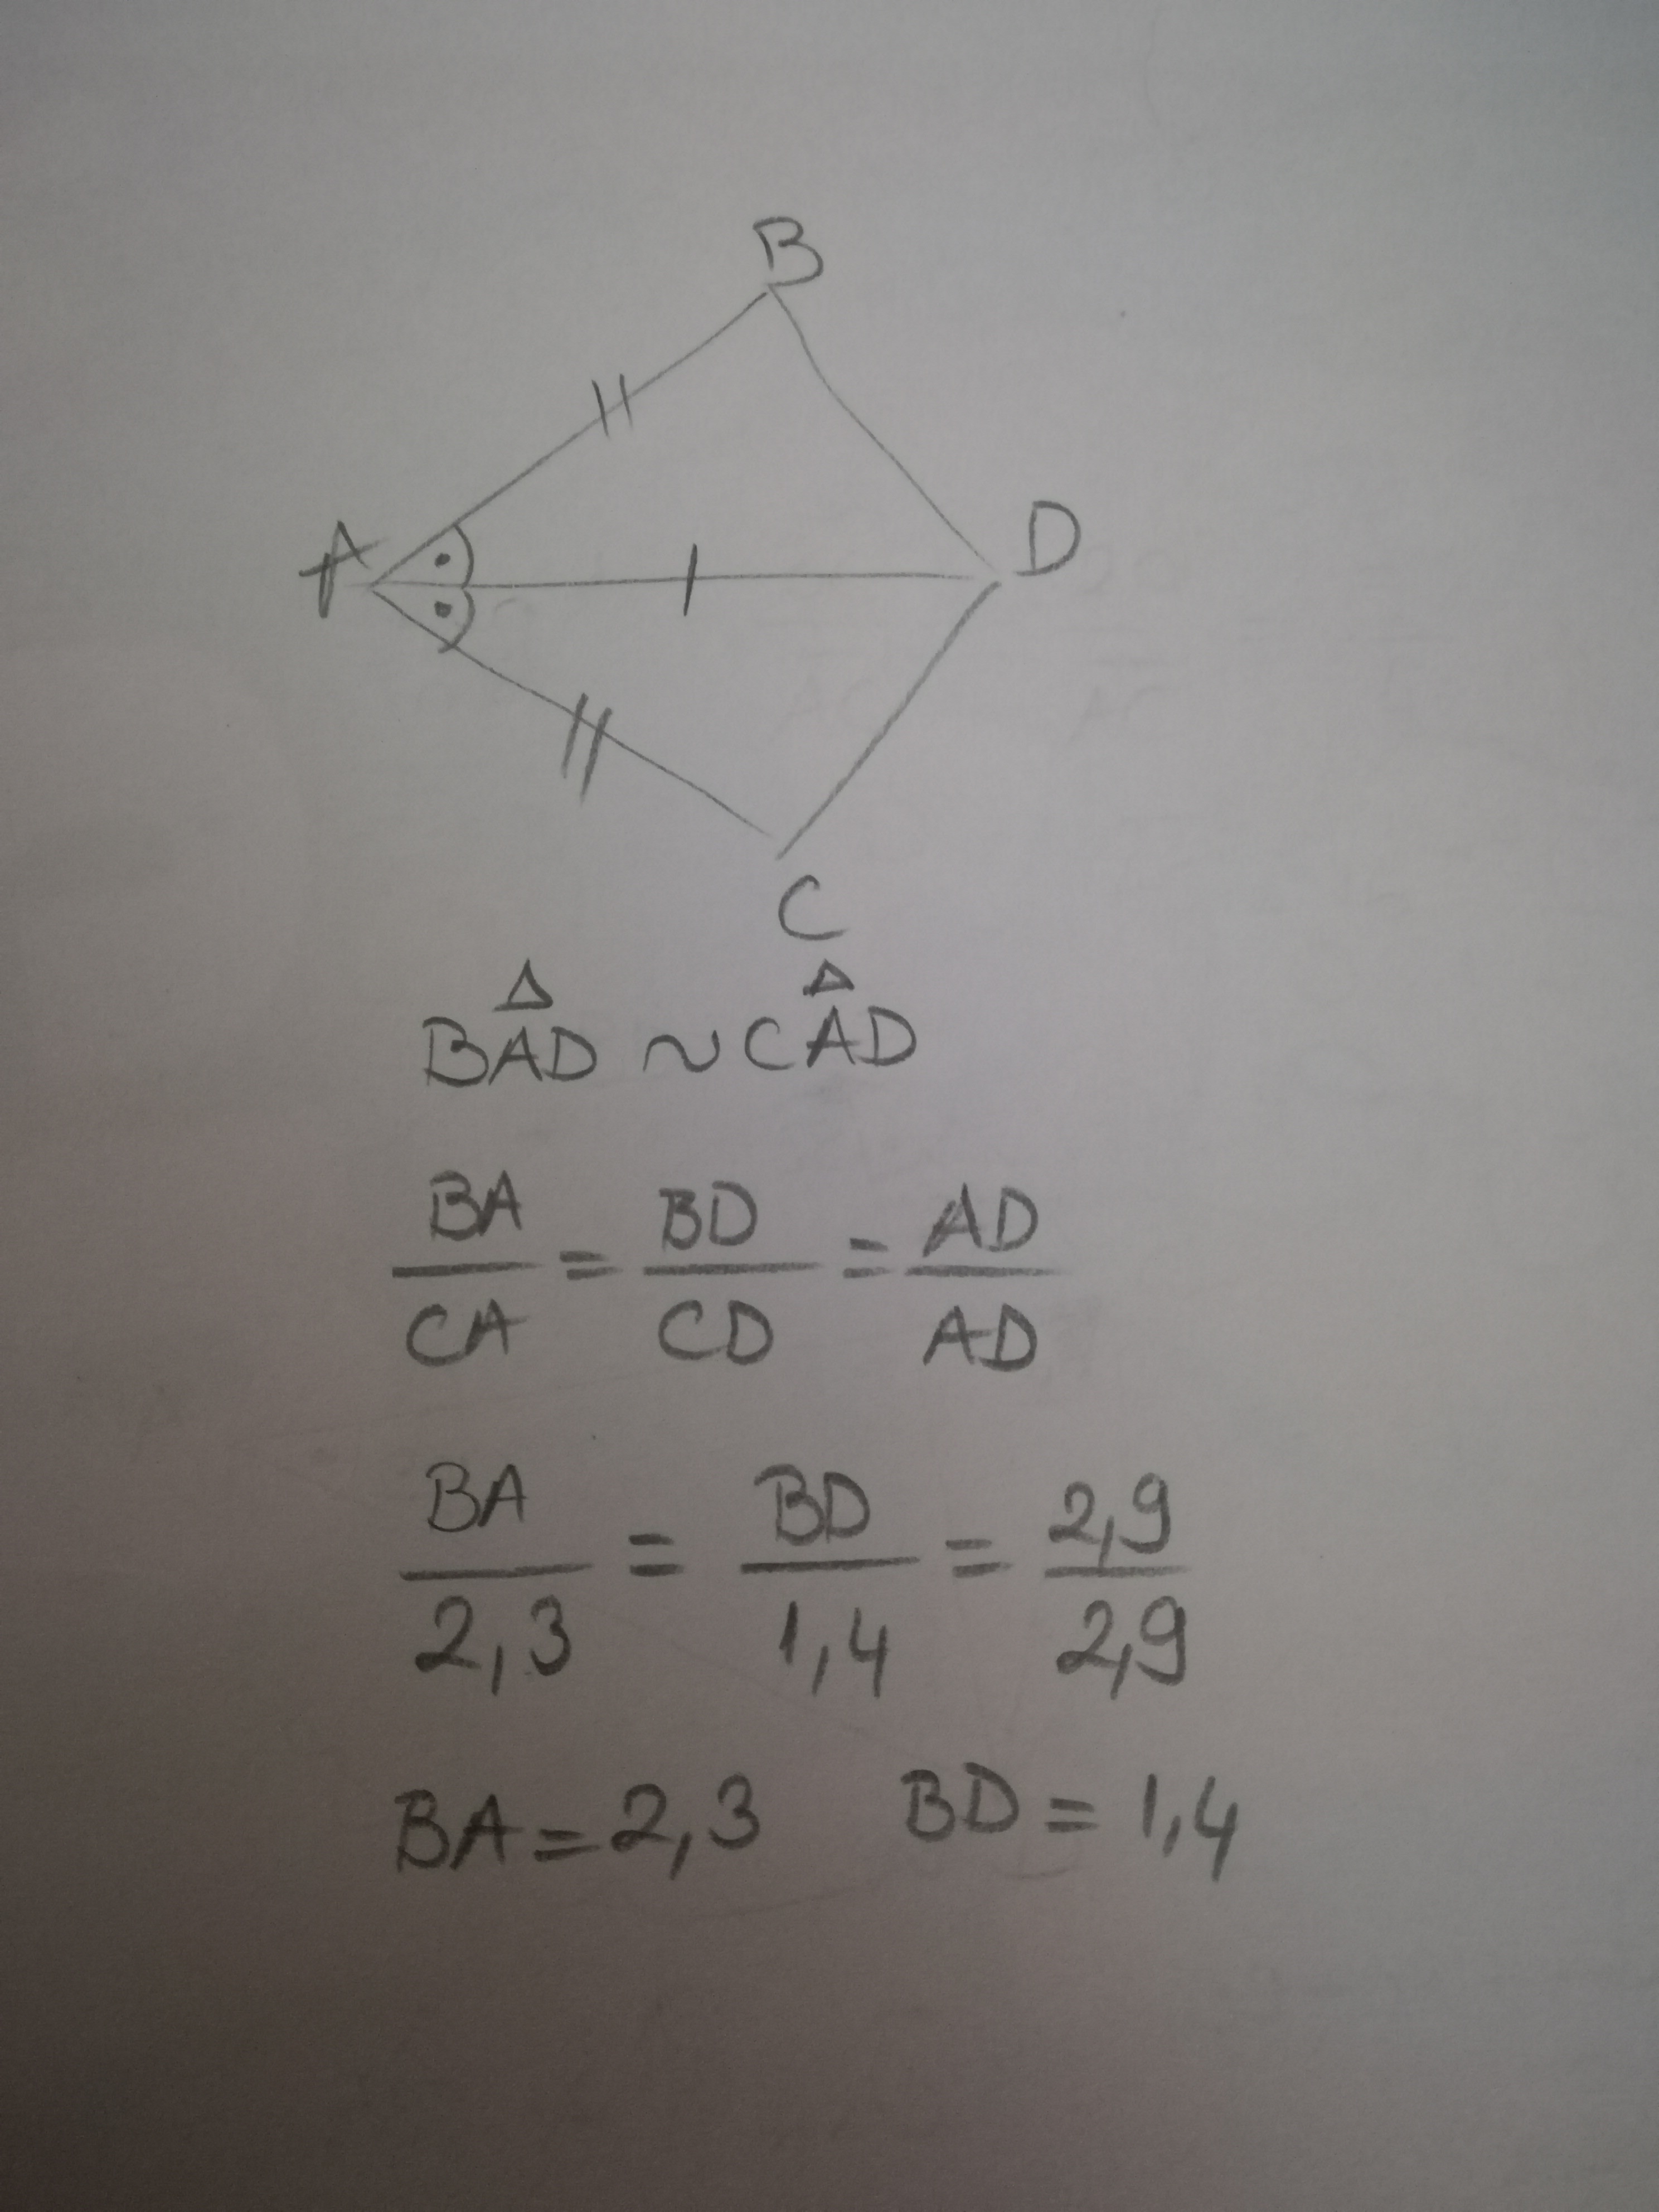 B
A
D
C
Δ Δ
BAD ~ CAD
BA/CA = BD/CD = AD/AD
BA/2,3 = BD/1,4 = 2,9/2,9
BA = 2,3 BD = 1,4